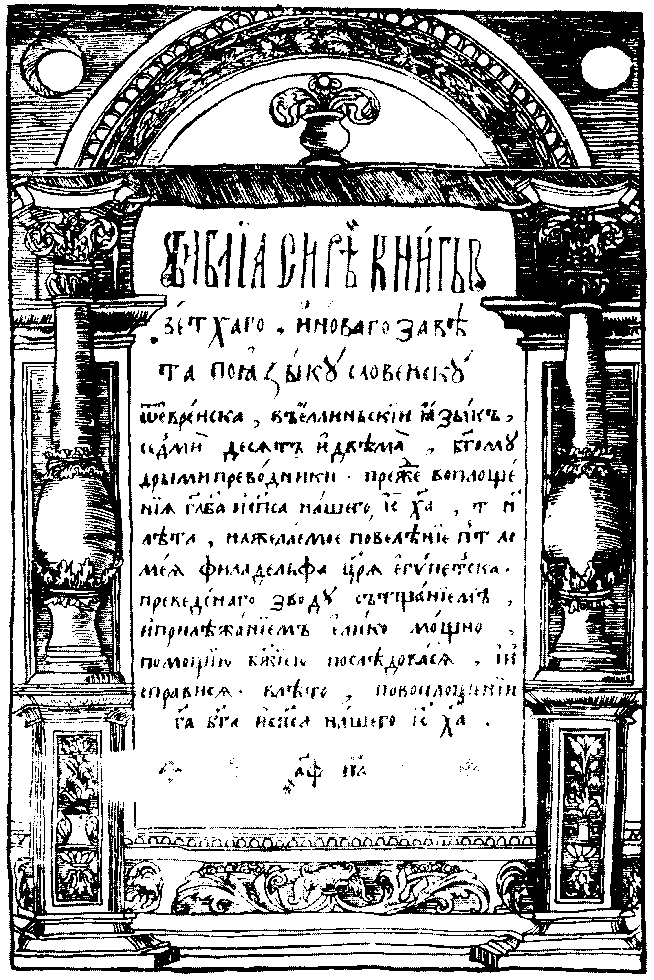 Библіа сирѣ книгы
ветхаго и новаго завѣ
та по языку словенску
ѿ еврейска, въ еллиньскіи языкъ,
седмій десятъ и двѣма, бг҃ому
дрыми преводники. преже воплоще
нія га҃ ба҃ и сп҃са нашего іс҃ ха҃, т҃
лѣта, на желаемое повелѣніе птоло
мея филадельфа царя египетска.
преведенаго зводу съ тщаніемъ,
и прилѣжаніемъ елико мощно,
помощію бж҃іею послѣдовася, и
исправися. в лѣто, по воплощеніи
га҃ ба҃ и сп҃са нашего іс҃ ха҃.
҂аф па